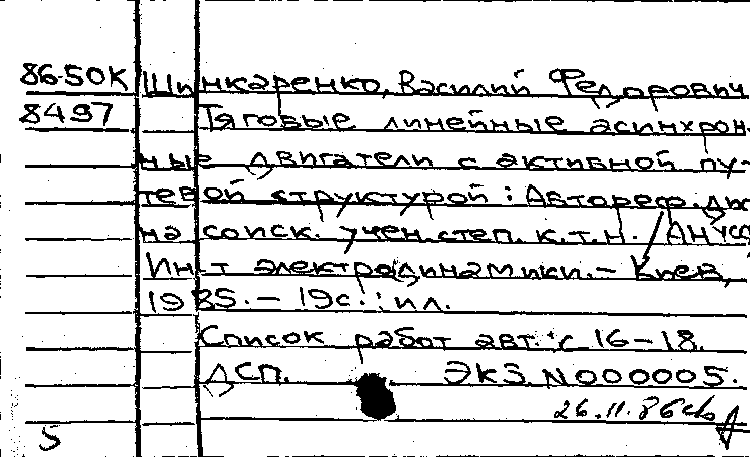 86-50К Шинкаренко, Василий Федорович
8497 Тяговые линейные асинхрон-
ные двигатели с активной пу-
тевой структурой : Автореф. дис
на соиск. учен. степ. к.т.н. / АН УССР
Ин-т электродинамики. – Киев,
1985. – 19с. : ил.
Список работ авт.: с 16-18.
ДСП. ЭКЗ. N000005.
26.11.86
5